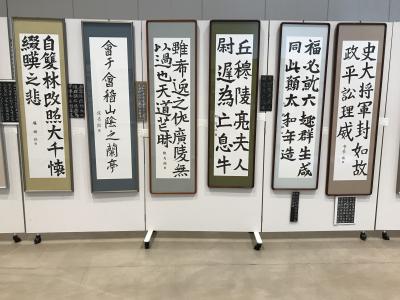 自雙林改照大千懷
綴暎之悲
會于會稽山陰之蘭亭
雖希逸之作廣陵無
以過也天道芒昧
丘穆陵亮夫人
尉遲為亡息牛
福必就六趣群生咸
同此願太和年造
史大将軍封如故
政平訟理威